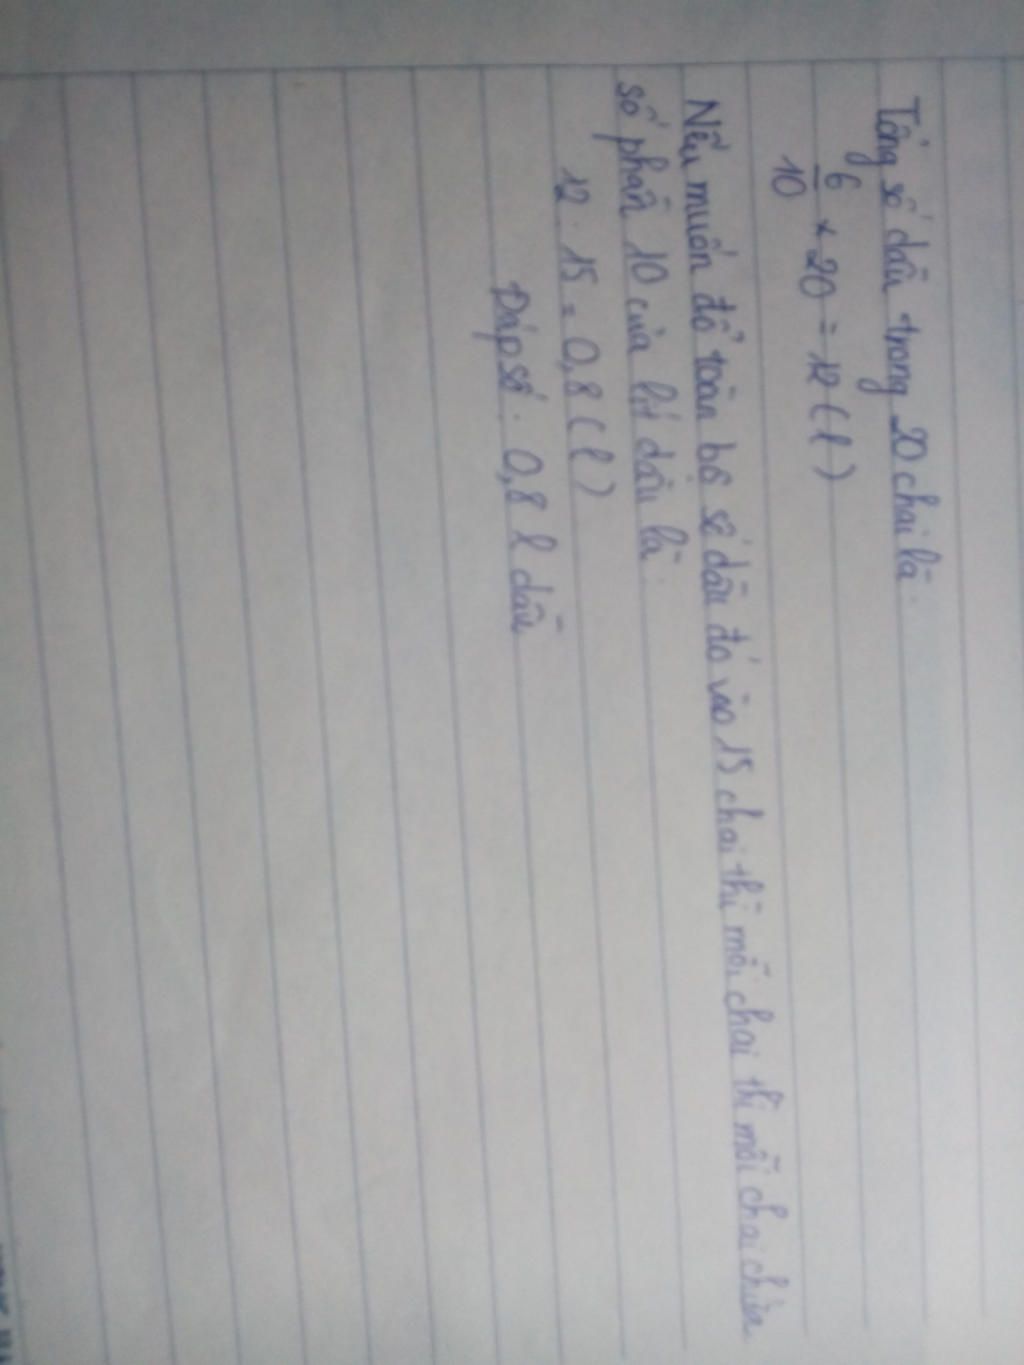 Tổng số dầu trong 20 chai là:
6/10 × 20 = 12 (l)
Nếu muốn đổ toàn bộ số dầu đó vào 15 chai thì mỗi chai thì mỗi chai chứa
số phần 10 của lít dầu là:
12 : 15 = 0,8 (l)
Đáp số: 0,8 l dầu